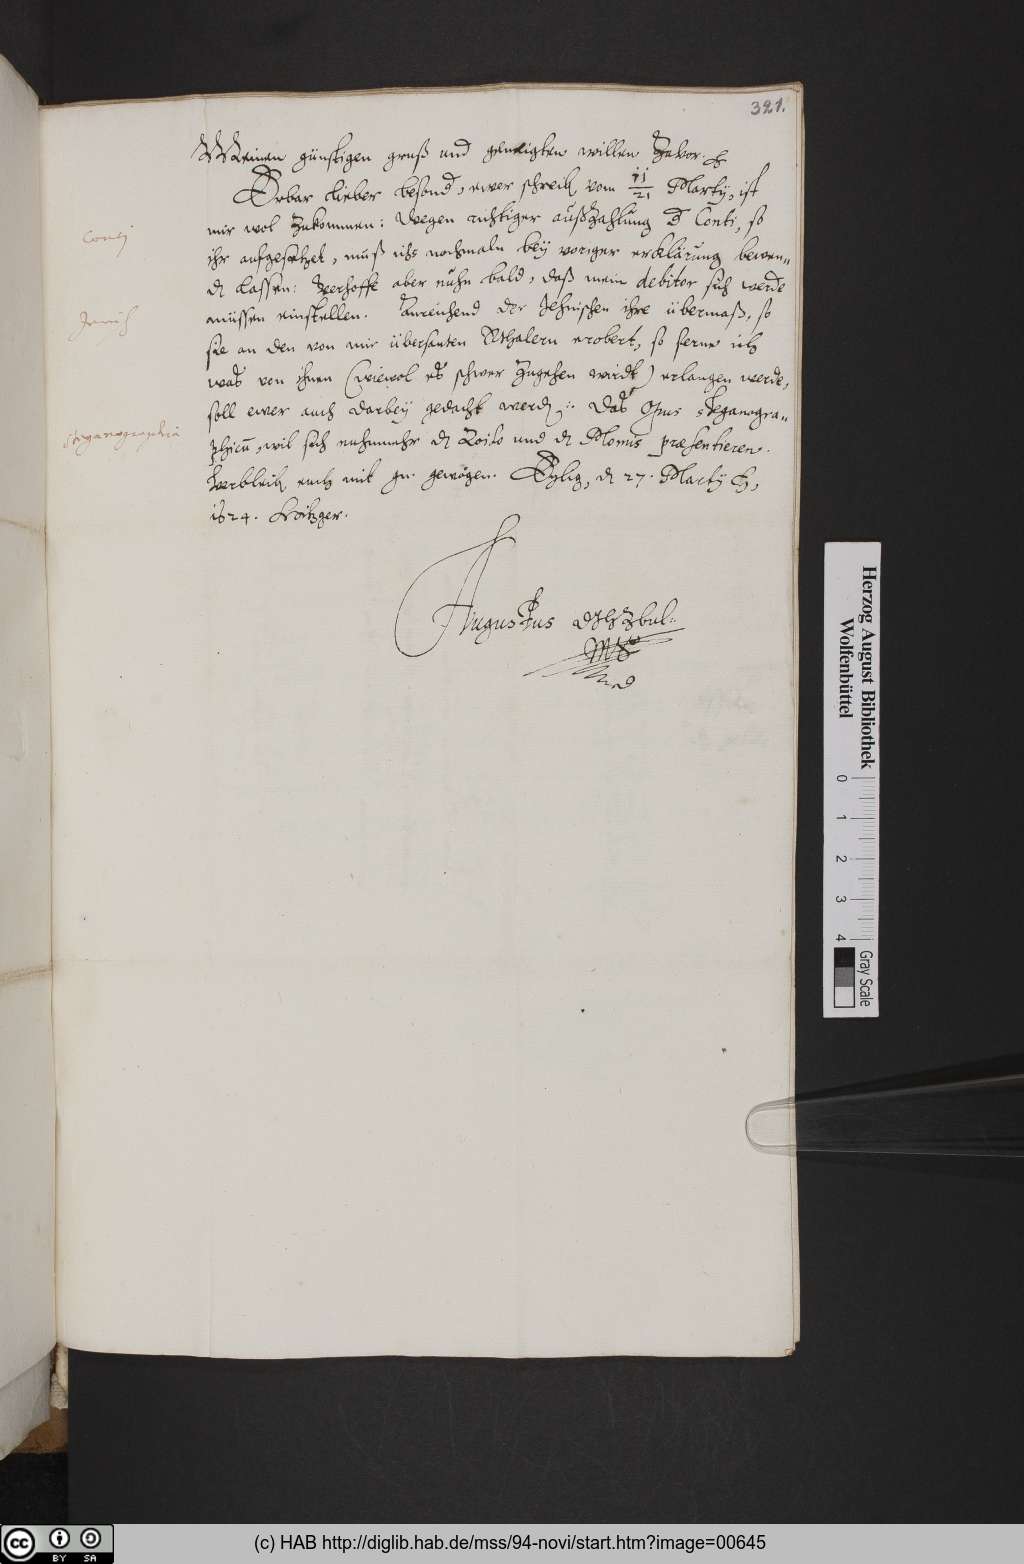 321.
Meinen günstigen gruß und geneigten willen Zuvor.
Erbar lieber besond, ewer schreib. vom 11/21 Marty, ist
mir wol Zukommen: Wegen richtiger außZahlung Conti, so
ihr aufgesetzet, muß ichs nochmaln bey voriger erklärung bewen=
lassen: Verhoffe aber nuhn bald, daß mein debitor sich werde
müssen einstellen. Anreichend der Jehnischen ihre übermaß, so
sie an den von mir übersanten Rthalern erobert, so ferne ich
was von ihnen (wiewol es schwer Zugehen wirdt) erlangen werde,
soll ewer auch darbey gedacht werd. Das Opus Steganogra=
phicū, wil sich nuhnmehr Zoilo und Momis præsentieren.
Verbleib euch mit gn. gewogen. Eylig, 27. Marty
1624. Hitzger.
Augustus
Conti
Jenisch
Steganographia
Herzog August Bibliothek
Wolfenbüttel
0 1 2 3 4
Gray Scale
cc BY SA
(c) HAB http://diglib.hab.de/mss/94-novi/start.htm?image=00645